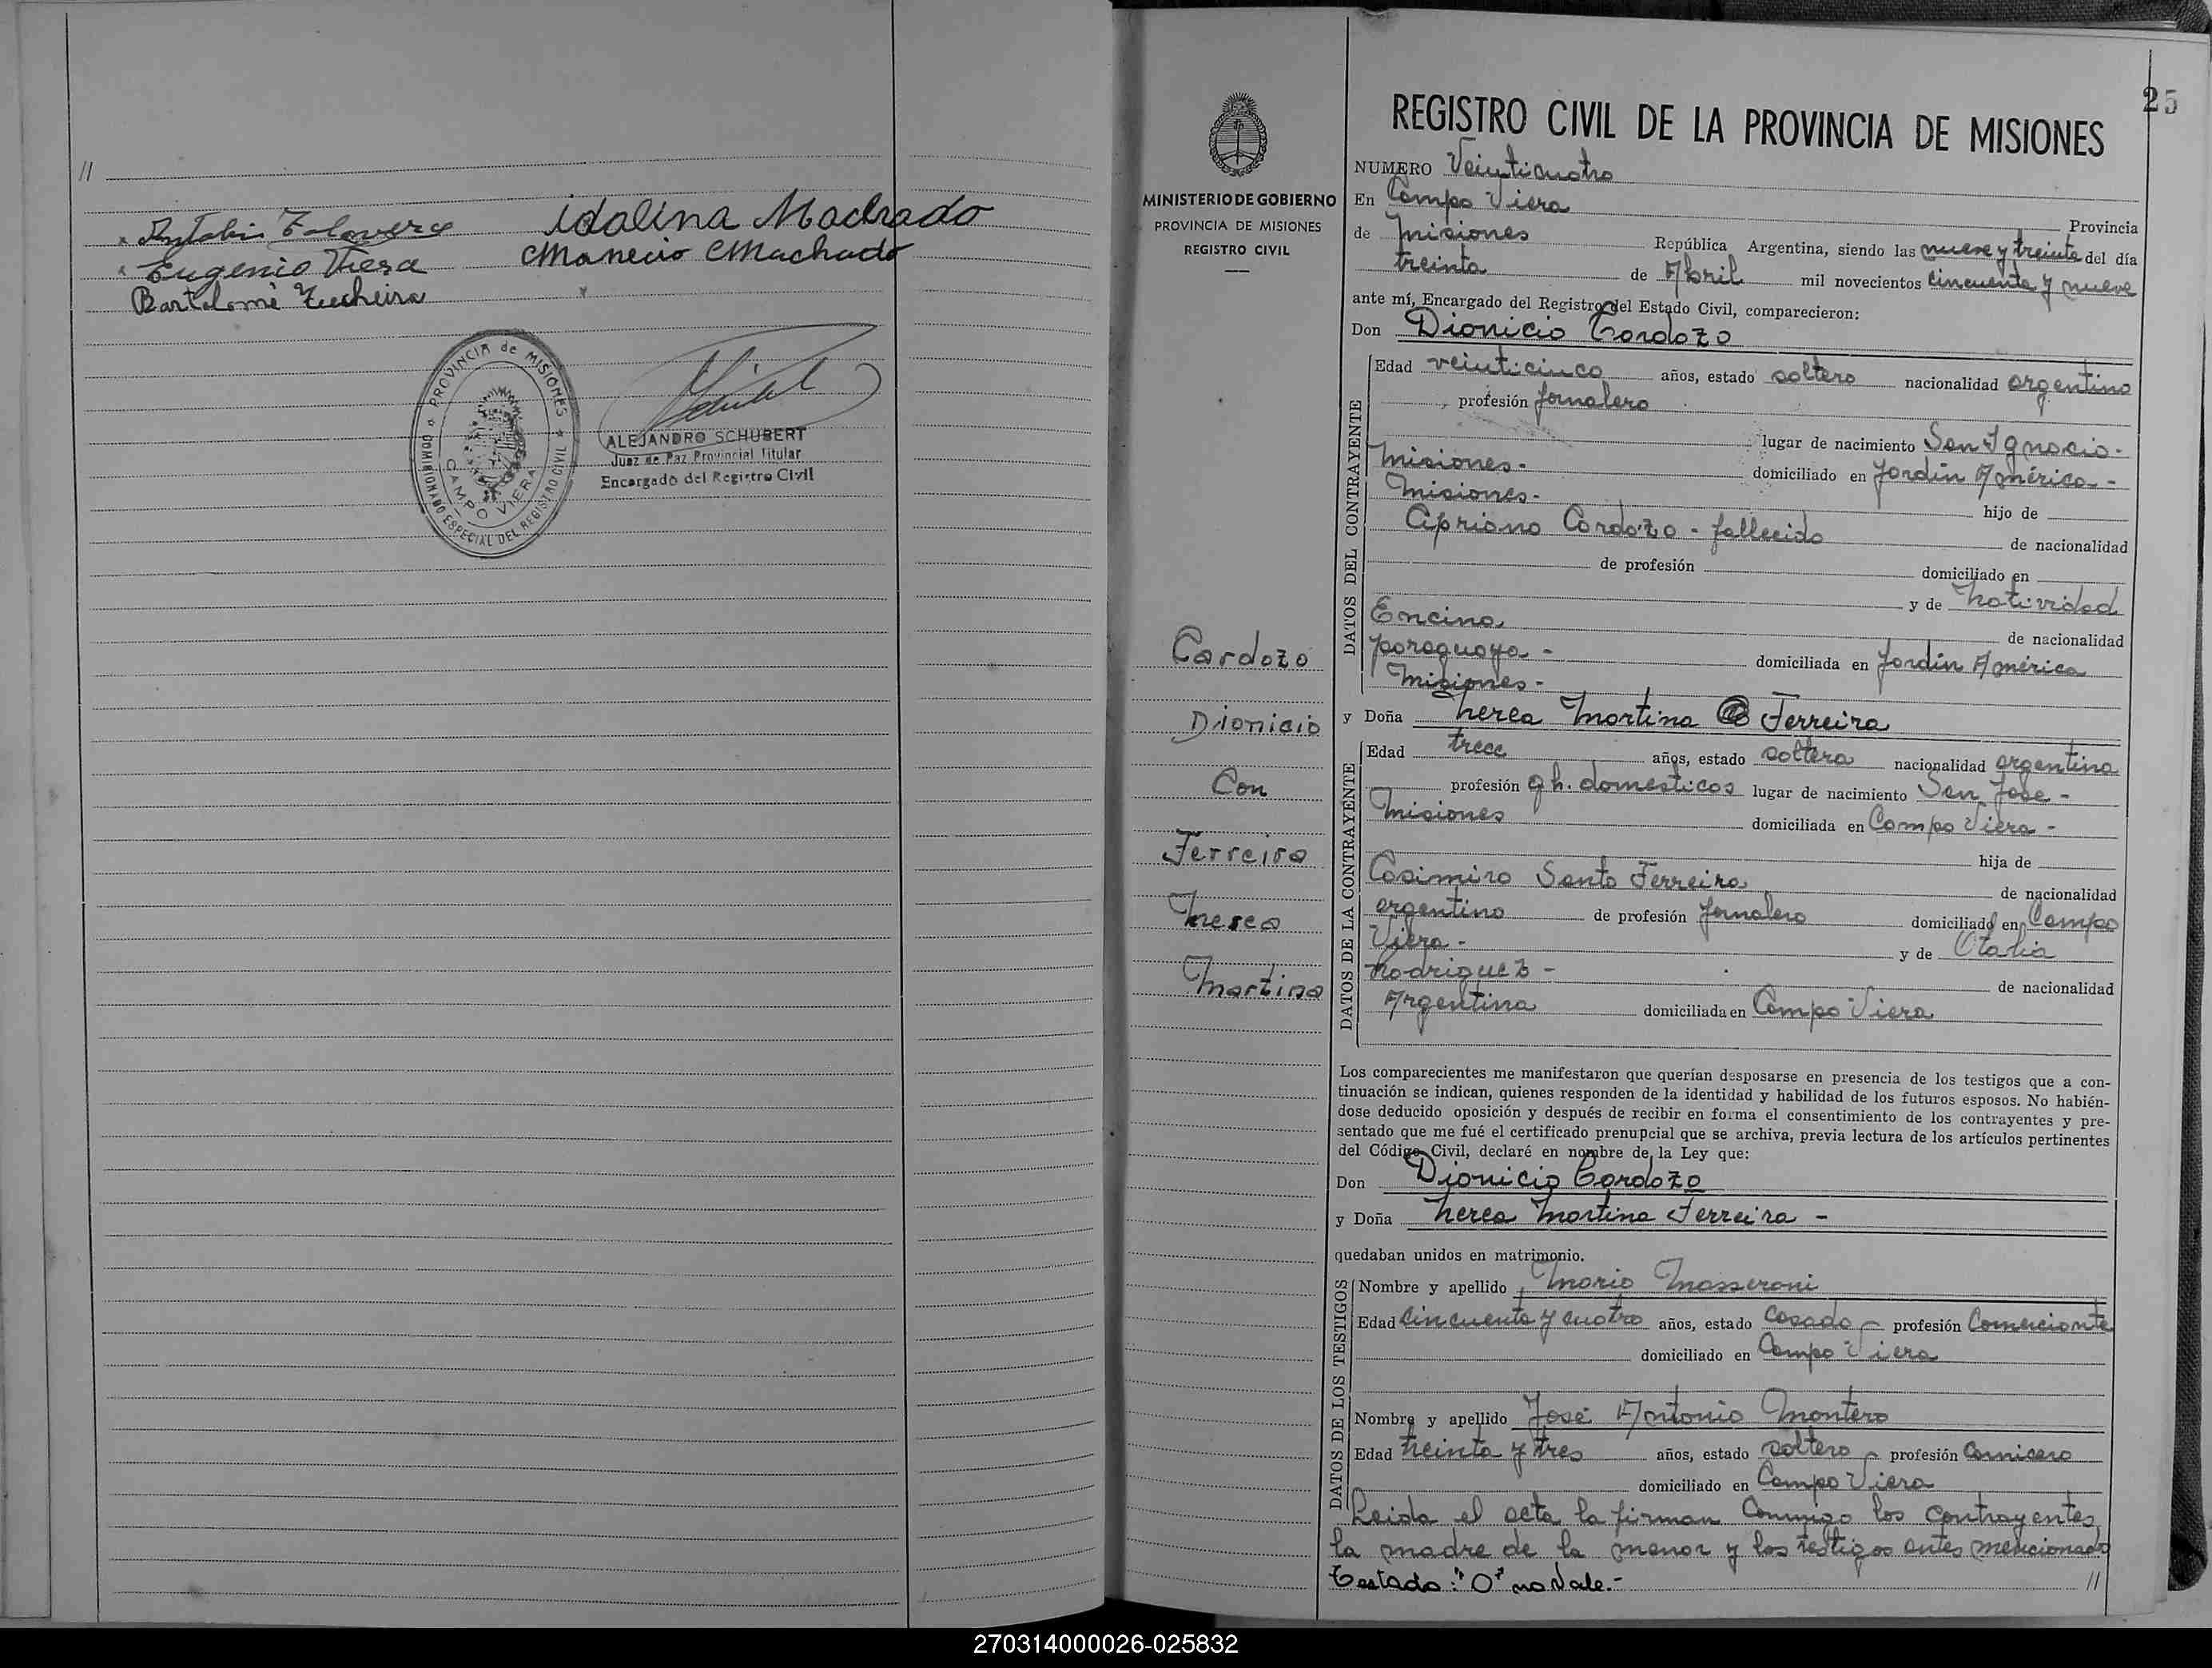 //
Eugenio Viera
Bartolomé
idalina Machado
Manecio Machado
PROVINCIA de MISIONES
COMISIONADO ESPECIAL DEL REGISTRO CIVIL
CAMPO VIERA
ALEJANDRO SCHUBERT
Juez de Paz Provincial Titular
Encargado del Registro Civil
25
MINISTERIO DE GOBIERNO
PROVINCIA DE MISIONES
REGISTRO CIVIL
Cardozo
Dionicio
Con
Ferreira
Nerea
Martina
REGISTRO CIVIL DE LA PROVINCIA DE MISIONES
NUMERO Veinticuatro
En Campo Viera Provincia
de Misiones República Argentina, siendo las nueve y treinta del día
treinta de Abril mil novecientos cincuenta y nueve
ante mí, Encargado del Registro del Estado Civil, comparecieron:
Don Dionicio Cardozo
DATOS DEL CONTRAYENTE
Edad veinticinco años, estado soltero nacionalidad argentino
profesión Jornalero
lugar de nacimiento San Ignacio-
Misiones- domiciliado en Jardín América-
Misiones- hijo de
Cipriano Cardozo - fallecido de nacionalidad
de profesión domiciliado en
y de Natividad
Encina de nacionalidad
paraguaya - domiciliada en Jardín América
Misiones-
y Doña Nerea Martina Ferreira
DATOS DE LA CONTRAYENTE
Edad trece años, estado soltera nacionalidad argentina
profesión q h. domesticos lugar de nacimiento San José -
Misiones domiciliada en Campo Viera -
hija de
Casimiro Santo Ferreira de nacionalidad
argentino de profesión Jornalero domiciliado en Campo
Viera - y de Otalia
Rodriguez - de nacionalidad
Argentina domiciliada en Campo Viera
Los comparecientes me manifestaron que querían desposarse en presencia de los testigos que a con-
tinuación se indican, quienes responden de la identidad y habilidad de los futuros esposos. No habién-
dose deducido oposición y después de recibir en forma el consentimiento de los contrayentes y pre-
sentado que me fué el certificado prenupcial que se archiva, previa lectura de los artículos pertinentes
del Código Civil, declaré en nombre de la Ley que:
Don Dionicio Cardozo
y Doña Nerea Martina Ferreira -
quedaban unidos en matrimonio.
DATOS DE LOS TESTIGOS
Nombre y apellido Mario Masseroni
Edad Cincuenta y cuatro años, estado casado - profesión Comerciante
domiciliado en Campo Viera
Nombre y apellido José Antonio Montero
Edad treinta y tres años, estado soltero - profesión Carnicero
domiciliado en Campo Viera
Leida el acta la firman Conmigo los contrayentes,
la madre de la menor y los testigos antes mencionado
Testado: "O" no vale.- //
270314000026-025832